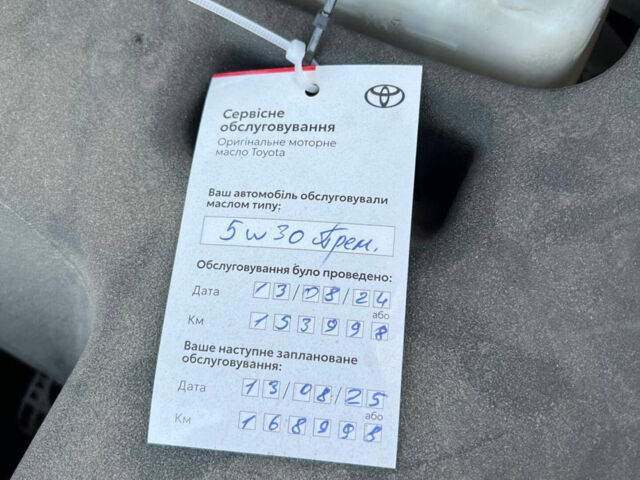 Сервісне
обслуговування
Оригінальне моторне
масло Toyota
Ваш автомобіль обслуговували
маслом типу:
5w30 Прем.
Обслуговування було проведено:
Дата 13/08/24
або
Км 153998
Ваше наступне заплановане
обслуговування:
Дата 13/08/25
або
Км 168998